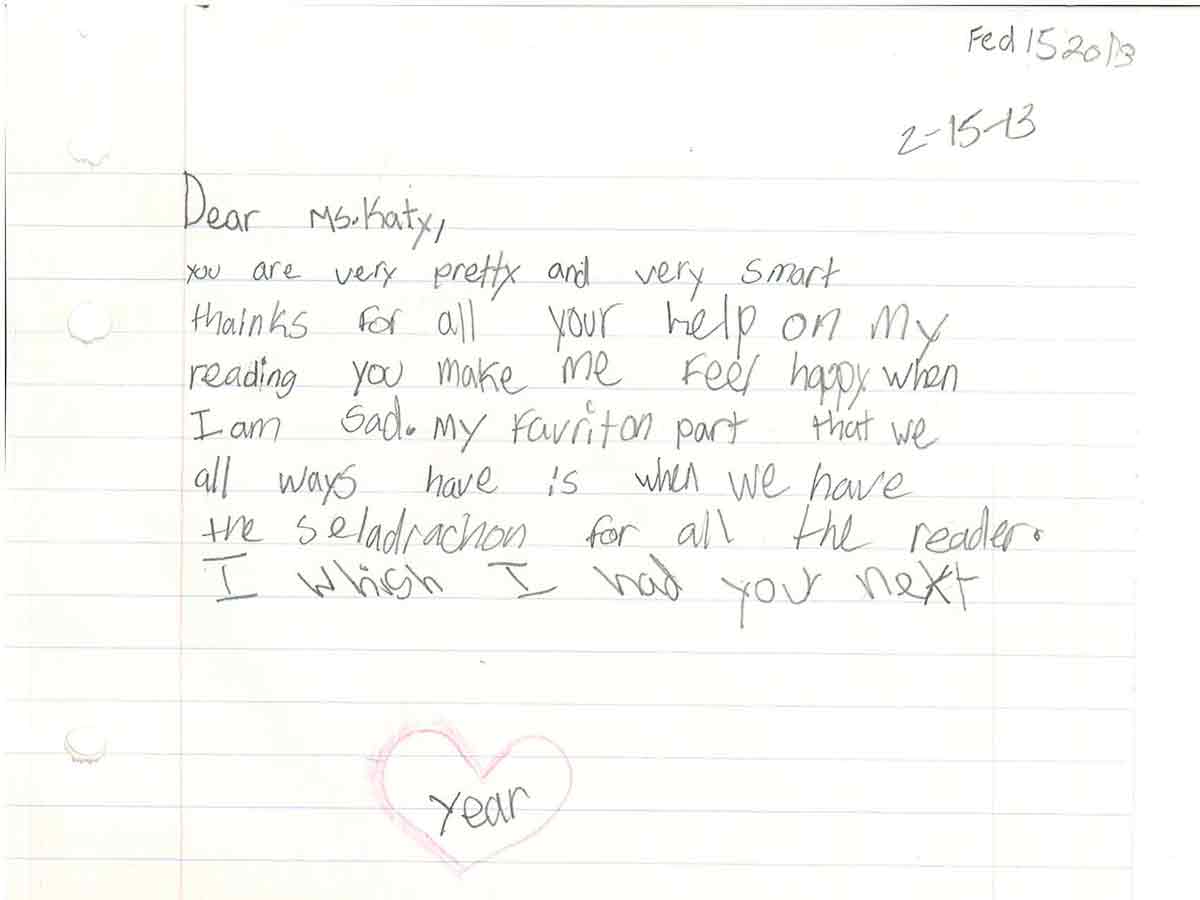 Fed 15 2013
2-15-13
Dear Ms. Katy,
you are very pretty and very smart
thainks for all your help on my
reading you make me Feel happy when
I am Sad. My Favriton part that we
all ways have is when we have
the seladrachon for all the reader.
I whish I had your next
year